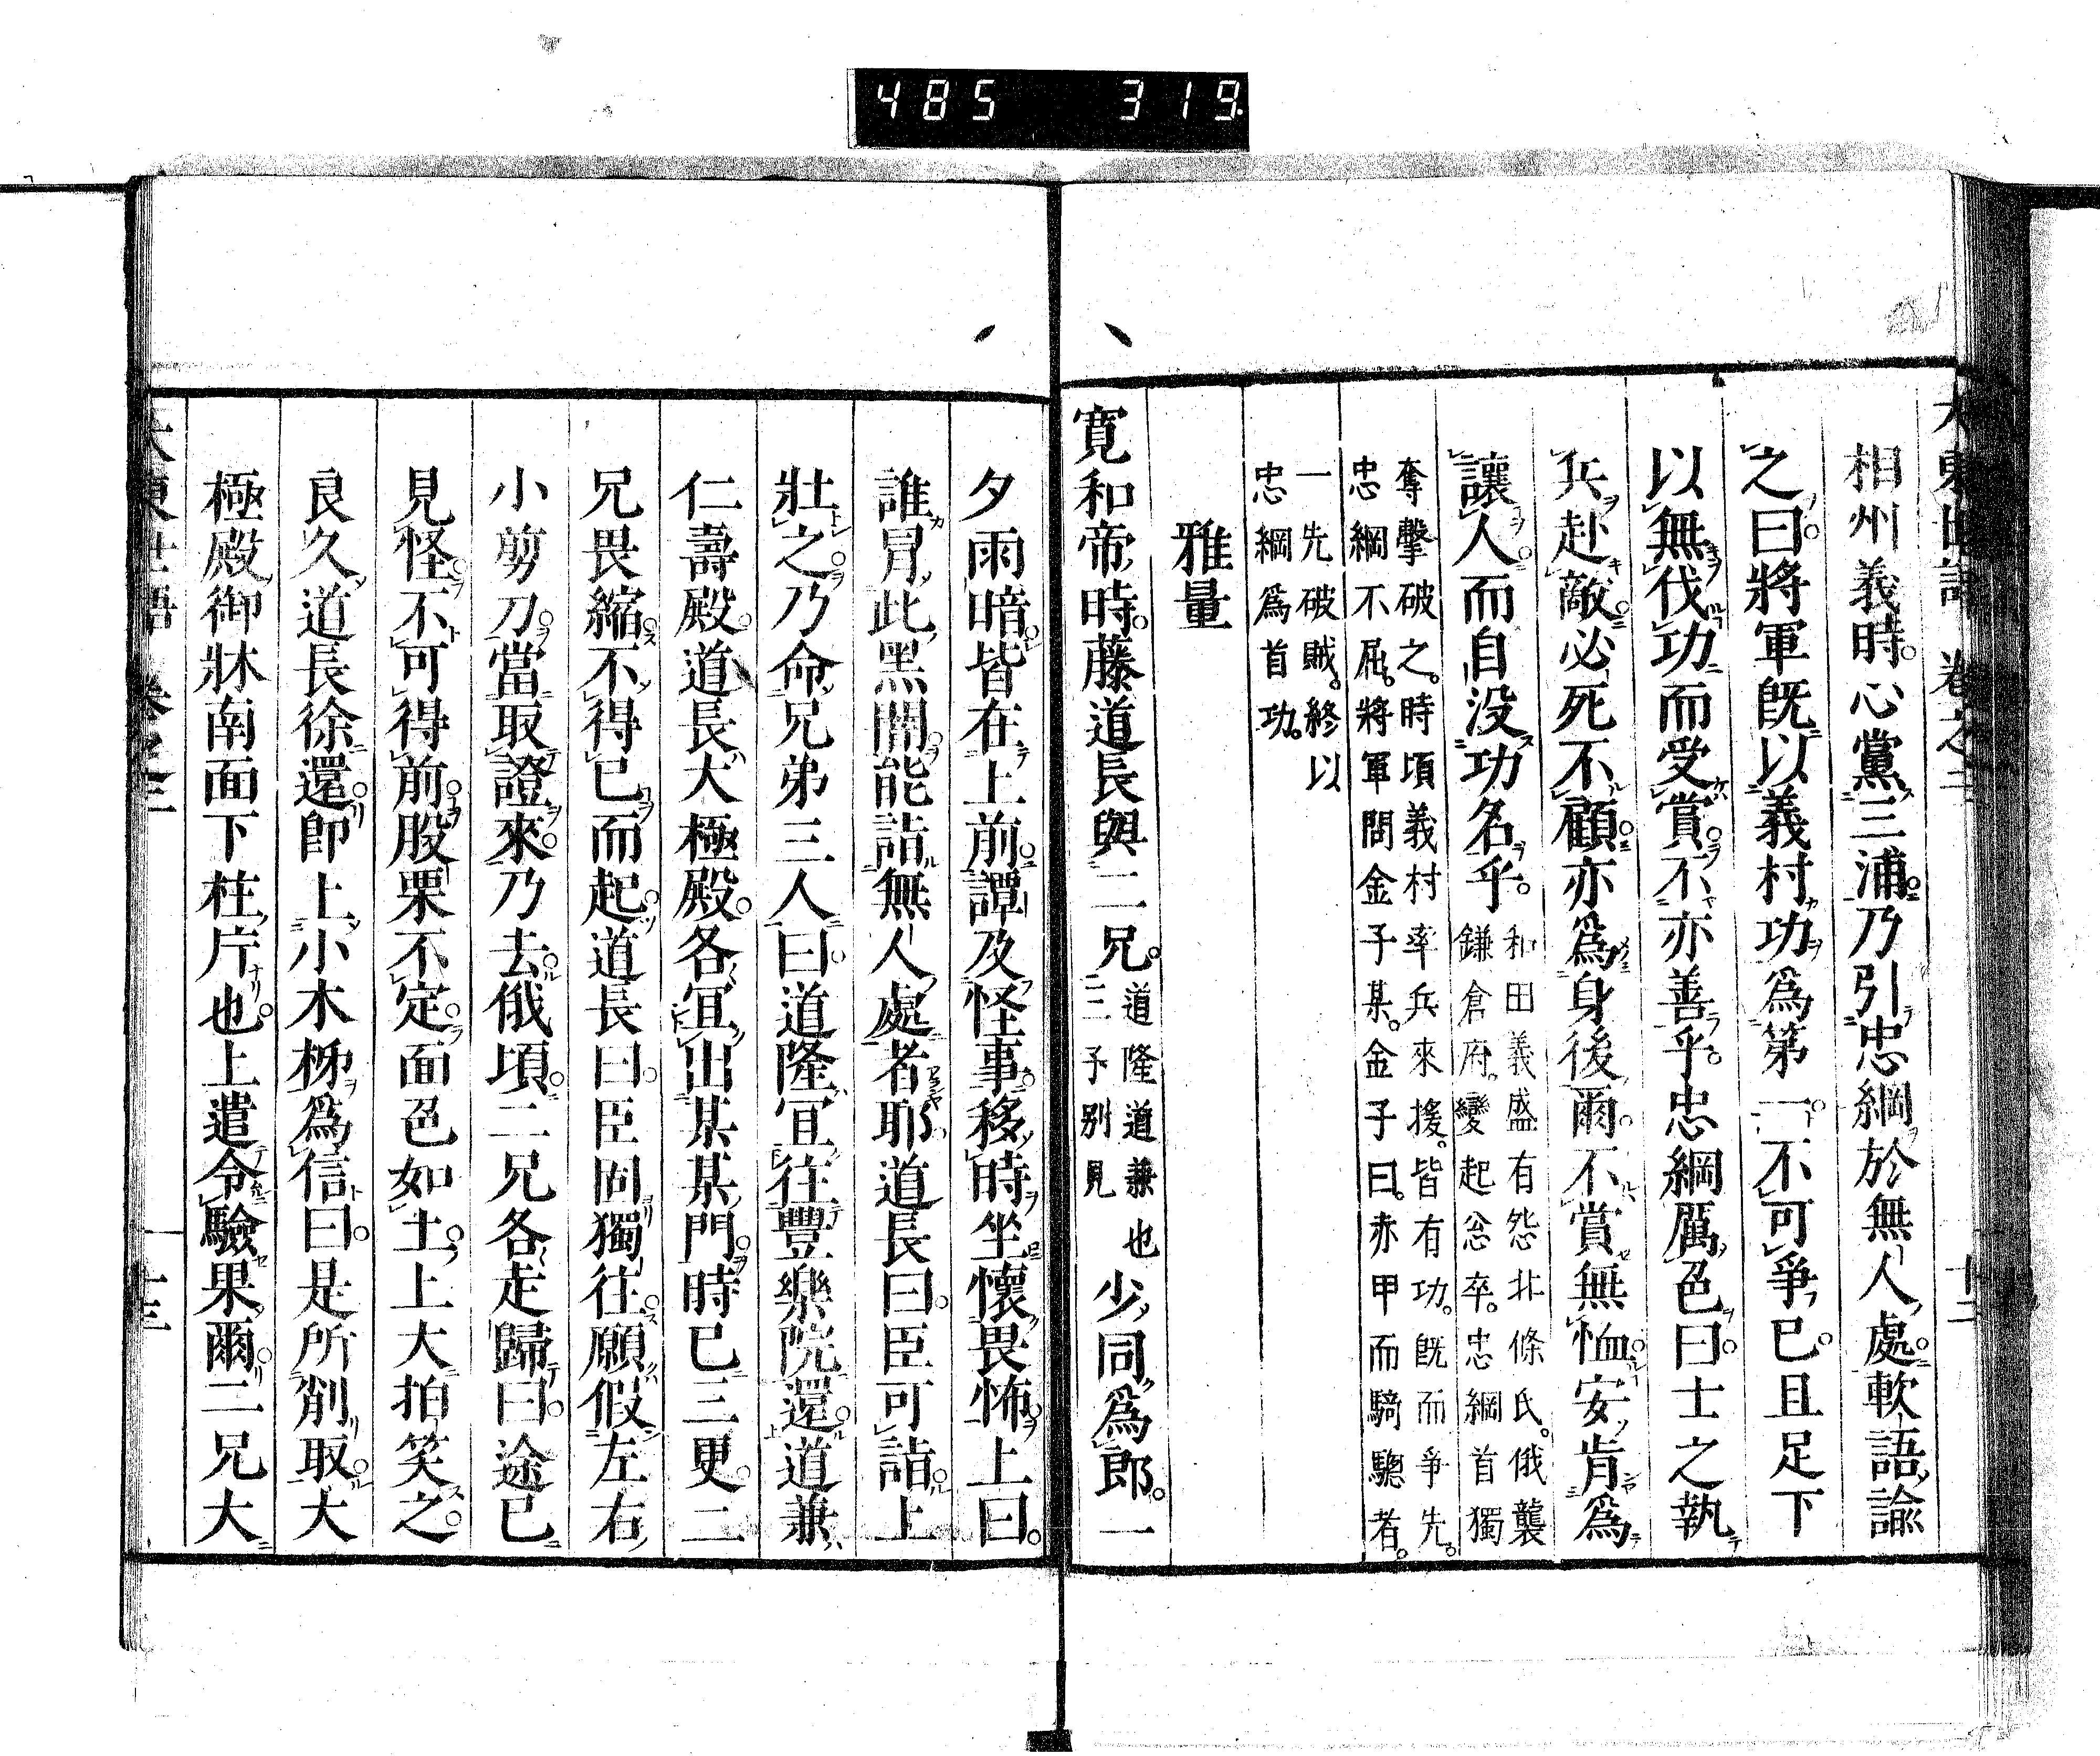 485 319
大東世語 卷之二 十二
相州義時心黨三浦乃引忠綱於無人處軟語諭
之曰將軍既以義村功爲第一不可爭已且足下
以無伐功而受賞不亦善乎忠綱厲色曰士之執
兵赴敵必死不顧亦爲身後爾不賞無恤安肯爲
讓人而自没功名乎
和田義盛有怨北條氏俄襲
鎌倉府變起忿卒忠綱首獨
奪擊破之時頃義村率兵來援皆有功既而爭先
忠綱不屈將軍問金子某金子曰赤甲而騎驄者
一先破賊終以
忠綱爲首功
雅量
寛和帝時藤道長與二兄
道隆道兼也
二予別見
少同爲郎一
夕雨暗皆在上前譚及怪事移時坐懷畏怖上曰
誰冐此黑闇能詣無人處者耶道長曰臣可詣上
壯之乃命兄弟三人曰道隆冝往豐樂院還道兼
仁壽殿道長大極殿各冝出某某門時已三更二
兄畏縮不得已而起道長曰臣固獨往願假左右
小剪刀當取證來乃去俄頃二兄各走歸曰途已
見怪不可得前股栗不定面色如土上大拍笑之
良久道長徐還卽上小木柹爲信曰是所削取大
極殿御牀南面下柱片也上遣令驗果爾二兄大
大東世語 卷之二 十三